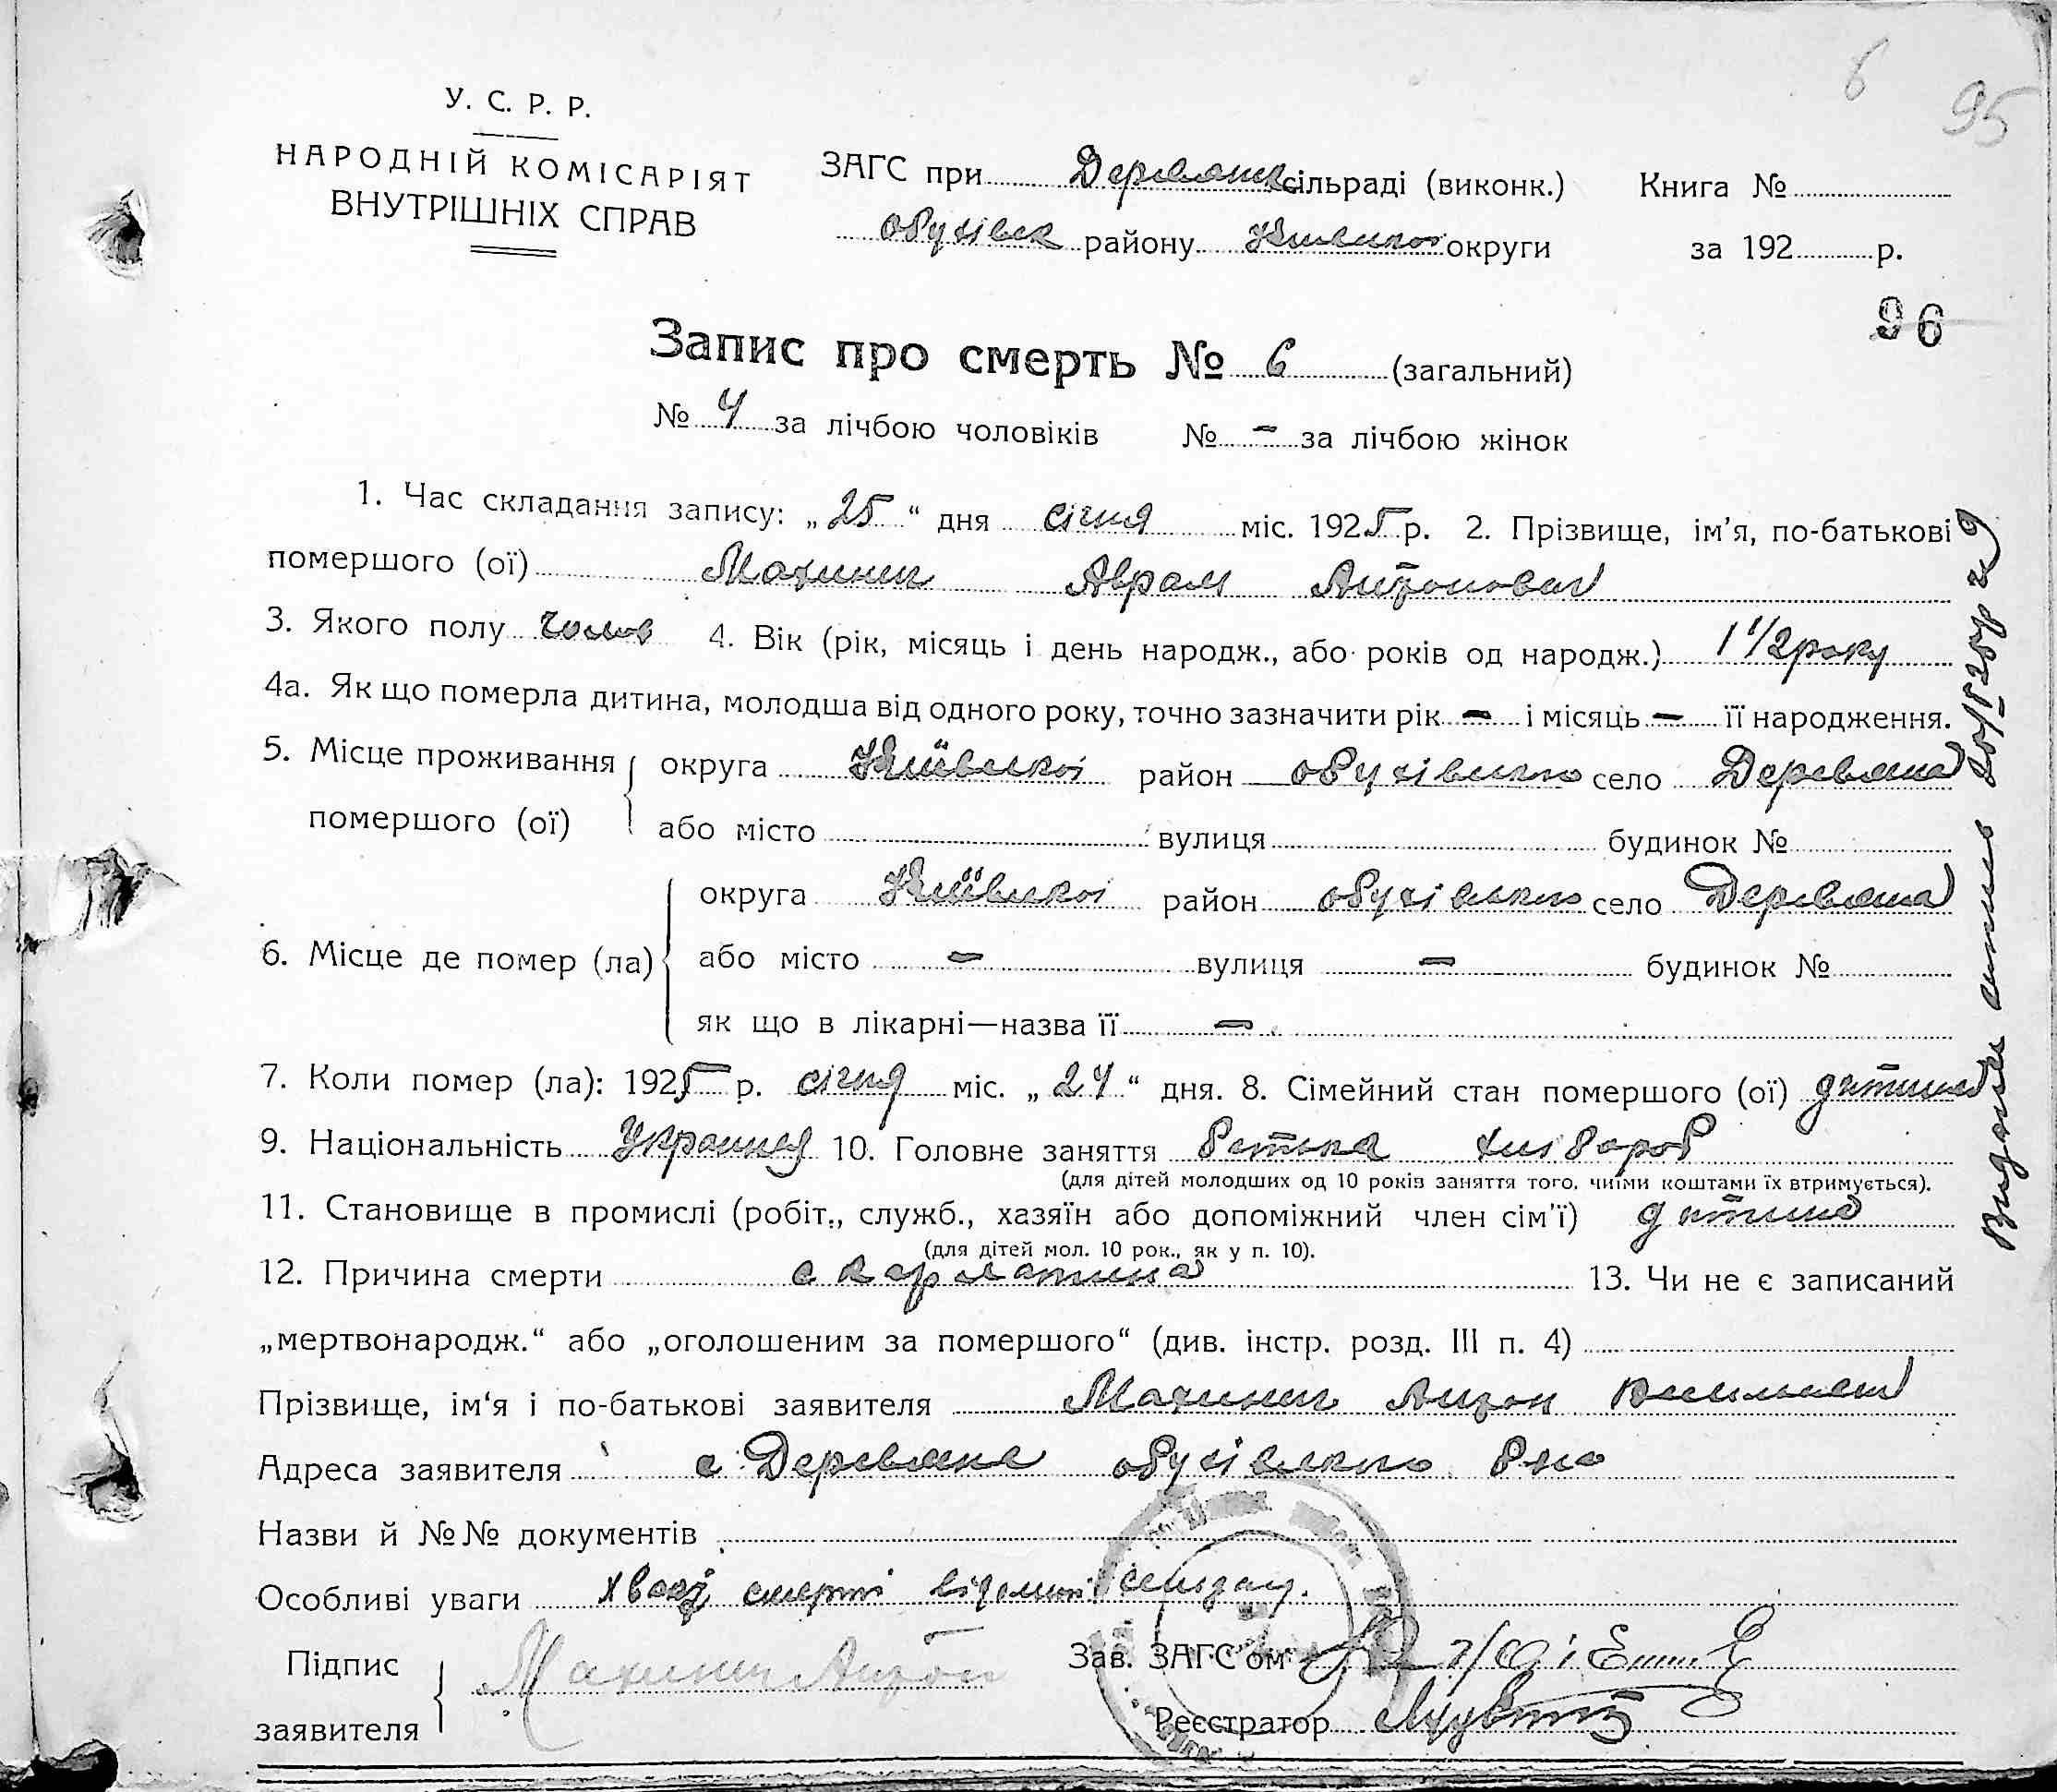 6
95
У. С. Р. Р.
НАРОДНІЙ КОМІСАРІЯТ
ВНУТРІШНІХ СПРАВ
ЗАГС при Деревянс. сільраді (виконк.) Книга №
Обухівск району Київської округи за 192 р.
96
Запис про смерть № 6 (загальний)
№ 4 за лічбою чоловіків № - за лічбою жінок
1. Час складання запису: „25“ дня січня міс. 1925 р. 2. Прізвище, ім'я, по-батькові
помершого (ої) Махинич Аврам Антонович
3. Якого полу чолов 4. Вік (рік, місяць і день народж., або років од народж.) 1 1/2 року
4а. Як що померла дитина, молодша від одного року, точно зазначити рік - і місяць - її народження.
5. Місце проживання округа Київської район обухівського село Деревяна
помершого (ої) або місто вулиця будинок №
округа Київської район обухівського село Деревяна
6. Місце де помер (ла) або місто - вулиця - будинок №
як що в лікарні—назва її -
7. Коли помер (ла): 1925 р. січня міс. „24“ дня. 8. Сімейний стан помершого (ої) дитина
9. Національність 10. Головне заняття батька хлібороб
(для дітей молодших од 10 років заняття того, чиїми коштами їх втримується).
11. Становище в промислі (робіт., служб., хазяїн або допоміжний член сім'ї) дитина
(для дітей мол. 10 рок., як у п. 10).
12. Причина смерти скарлатина 13. Чи не є записаний
„мертвонародж.“ або „оголошеним за помершого“ (див. інстр. розд. III п. 4)
Прізвище, ім'я і по-батькові заявителя Махинич Антон
Адреса заявителя с. Деревяна обухівського р-на
Назви й №№ документів
Особливі уваги смерті
Підпис Махинич Антон Зав. ЗАГС'ом
заявителя Реєстратор